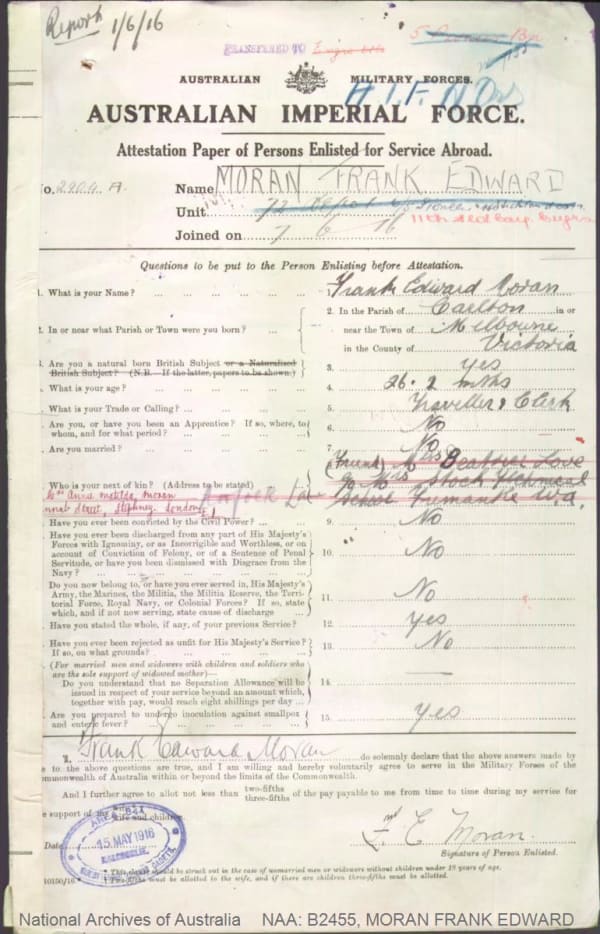 Report 1/6/16
TRANSFERRED TO Engrs
5 Pioneer Bn
AUSTRALIAN MILITARY FORCES.
A.I.F. N
AUSTRALIAN IMPERIAL FORCE.
Attestation Paper of Persons Enlisted for Service Abroad.
No. 2904 A. Name MORAN FRANK EDWARD
Unit
11th Engrs
Joined on 7 6 16
Questions to be put to the Person Enlisting before Attestation.
1. What is your Name? ... Frank Edward Moran
2. In or near what Parish or Town were you born? ... 2. In the Parish of Carlton in or
near the Town of Melbourne
in the County of Victoria
3. Are you a natural born British Subject or a Naturalized
British Subject? (N.B. If the latter, papers to be shown.) 3. Yes
4. What is your age? ... 4. 26. 2 mths
5. What is your Trade or Calling? ... 5. Traveller & Clerk
6. Are you, or have you been an Apprentice? If so, where, to
whom, and for what period? ... 6. No
7. Are you married? ... 7. No
(Friend) Mrs Beatrice Love
Who is your next of kin? (Address to be stated) C/o Mrs Stock Technical
School Fremantle W.A.
Mrs Anna Matilda Moran
Street, Stepney. London, E
Norfolk
Have you ever been convicted by the Civil Power? ... 9. No
Have you ever been discharged from any part of His Majesty's
Forces with Ignominy, or as Incorrigible and Worthless, or on
account of Conviction of Felony, or of a Sentence of Penal
Servitude, or have you been dismissed with Disgrace from the
Navy? ... 10. No
Do you now belong to, or have you ever served in, His Majesty's
Army, the Marines, the Militia, the Militia Reserve, the Terri-
torial Force, Royal Navy, or Colonial Forces? If so, state
which, and if not now serving, state cause of discharge 11. No
Have you stated the whole, if any, of your previous Service? 12. Yes
Have you ever been rejected as unfit for His Majesty's Service?
If so, on what grounds? ... 13. No
(For married men and widowers with children and soldiers who
are the sole support of widowed mother)—
Do you understand that no Separation Allowance will be
issued in respect of your service beyond an amount which,
together with pay, would reach eight shillings per day ... 14. —
Are you prepared to undergo inoculation against smallpox
and enteric fever? ... 15. Yes
I, Frank Edward Moran do solemnly declare that the above answers made by
me to the above questions are true, and I am willing and hereby voluntarily agree to serve in the Military Forces of the
Commonwealth of Australia within or beyond the limits of the Commonwealth.
And I further agree to allot not less than two-fifths three-fifths of the pay payable to me from time to time during my service for
the support of my wife wife and children.
15 MAY 1916
KALGOORLIE
Date
F. E. Moran.
Signature of Person Enlisted.
* This clause should be struck out in the case of unmarried men or widowers without children under 18 years of age.
† Two-fifths must be allotted to the wife, and if there are children three-fifths must be allotted.
National Archives of Australia NAA: B2455, MORAN FRANK EDWARD